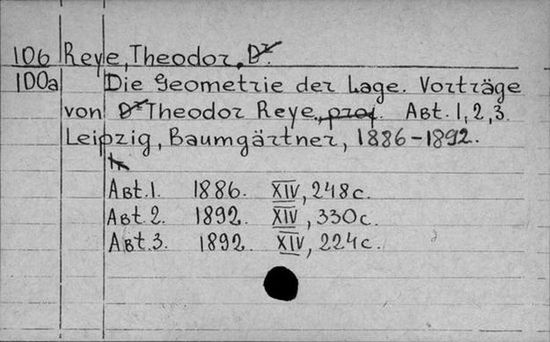 106 Reye, Theodor, Dr
100a Die Geometrie der Lage. Vorträge
von Dr Theodor Reye, prof. Abt. 1, 2, 3.
Leipzig, Baumgärtner, 1886-1892.
Abt. 1. 1886. XIV, 248 c.
Abt. 2. 1892. XIV, 330 c.
Abt. 3. 1892. XIV, 224 c.